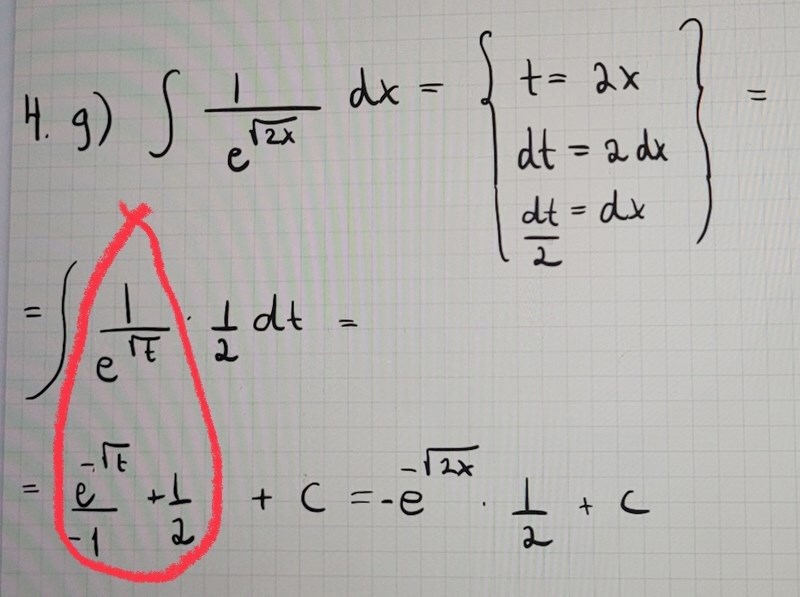 4. g) ∫ 1/e^√(2x) dx = { t = 2x
dt = 2 dx
dt/2 = dx } =
= ∫ 1/e^√t · 1/2 dt =
= e^(-√t)/-1 + 1/2 + C = -e^(-√(2x)) · 1/2 + C